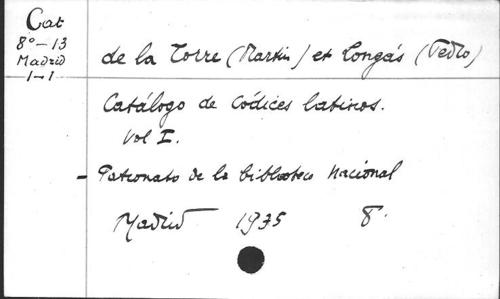 Cat
8º-13
Madrid
1-1
de la Torre (Martin) et Longás (Pedro)
Catálogo de Códices latinos.
Vol I.
- Patronato de la biblioteca Nacional
Madrid 1935 8º.